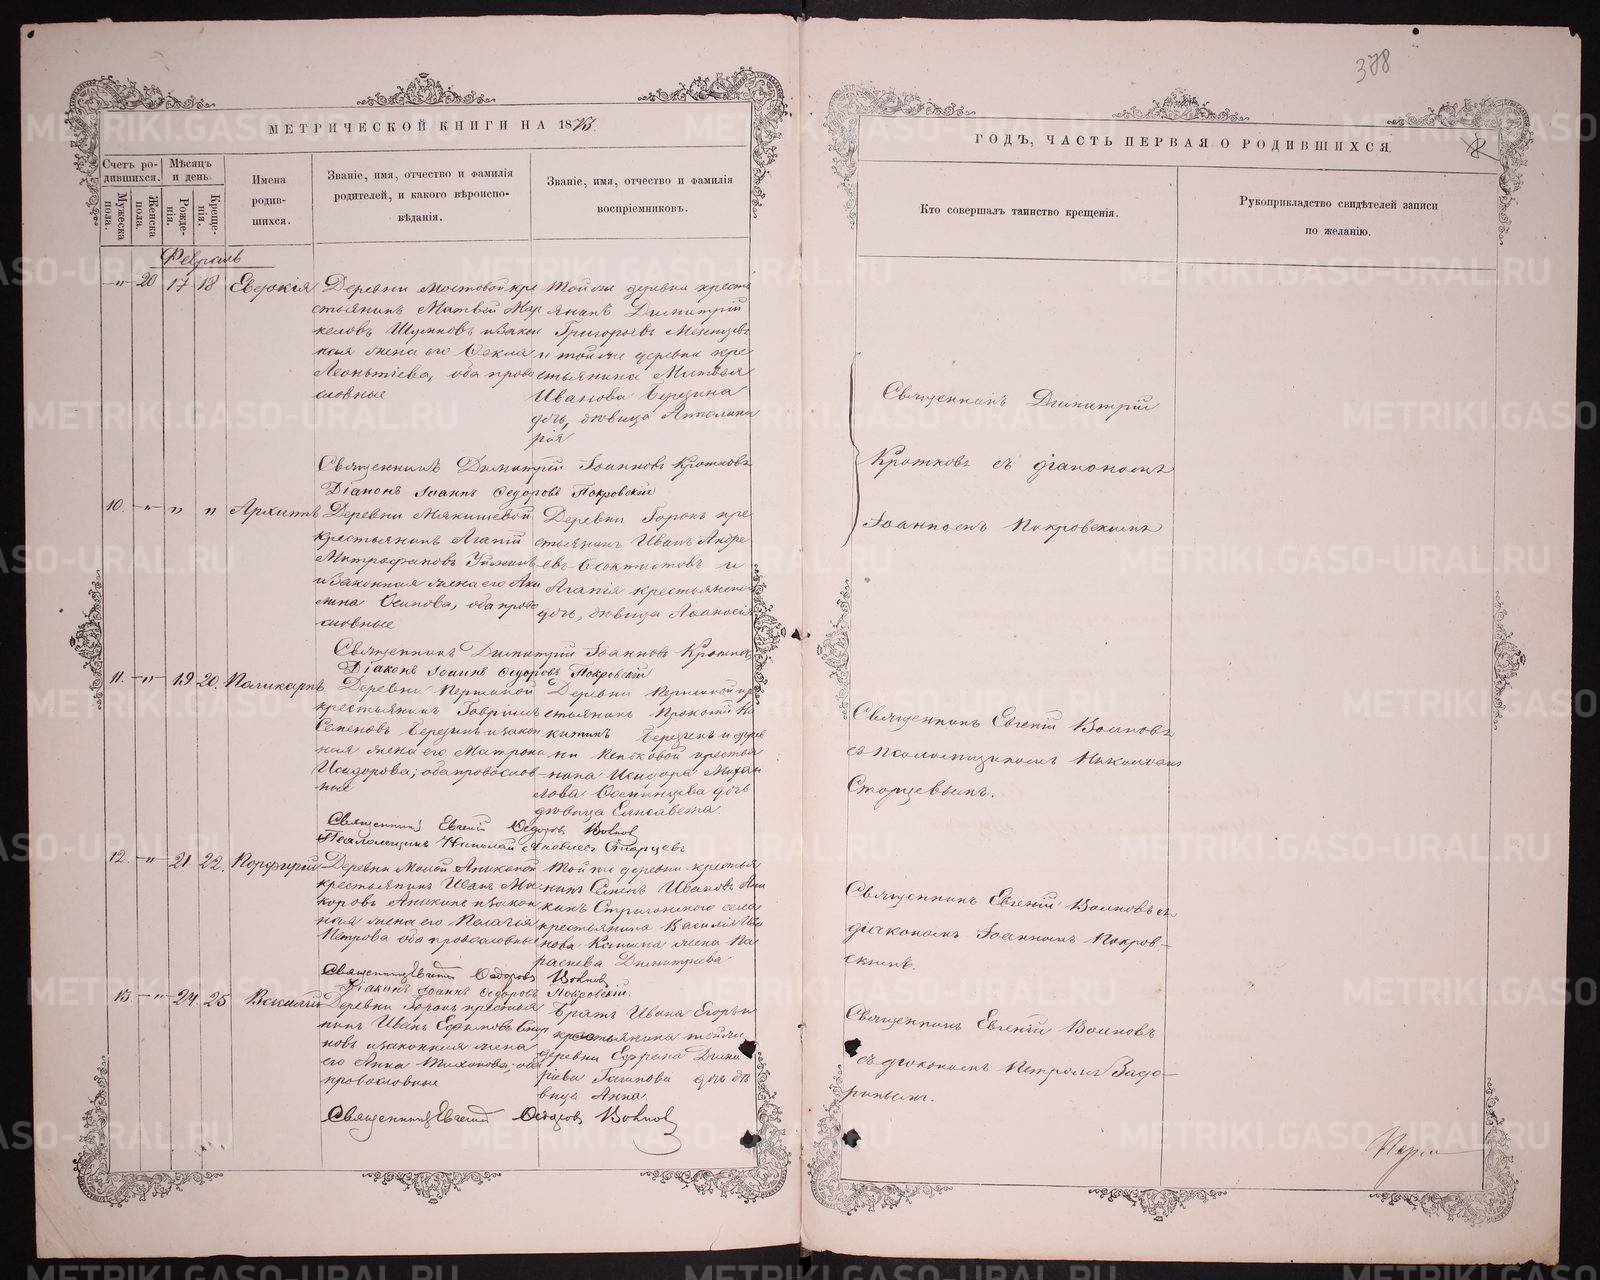 378
МЕТРИЧЕСКОЙ КНИГИ НА 1873.
ГОДЪ, ЧАСТЬ ПЕРВАЯ О РОДИВШИХСЯ.
Счетъ ро-
дившихся.
Мѣсяцъ
и день.
Мужеска
пола.
Женска
пола.
Рожде-
нія.
Креще-
нія.
Имена
родив-
шихся.
Званіе, имя, отчество и фамилія
родителей, и какого вѣроиспо-
вѣданія.
Званіе, имя, отчество и фамилія
воспріемниковъ.
Кто совершалъ таинство крещенія.
Рукоприкладство свидѣтелей записи
по желанію.
Февраль
20 17 18 Евдокія
Деревни Мостовой кре
стьянинъ Матвей Мар
келовъ и закон
ная жена его Фекла
Леонтіева, оба право
славные
Той же деревни кресть
янинъ Димитрій
Григорьевъ
и той же деревни кре
стьянина Матвѣя
Иванова Березина
дочь, дѣвица Апполина
рія
Священникъ Димитрій Іоанновъ Кротковъ
Діаконъ Іоаннъ Ѳедоровъ Покровскій
Священникъ Димитрій
Кротковъ съ діакономъ
Іоанномъ Покровскимъ
10. Архиппъ
Деревни Мякишевой
крестьянинъ Агапій
Митрофановъ
и законная жена его Аку
лина Осипова, оба право
славные
Деревни Горокъ кре
стьянинъ Иванъ Андре
евъ Феоктистовъ и
Агапія крестьянская
дочь, дѣвица Афанасія
Священникъ Димитрій Іоанновъ Кротковъ
Діаконъ Іоаннъ Ѳедоровъ Покровскій
11. 19 20. Поликарпъ
Деревни Першиной
крестьянинъ Гавріилъ
Семеновъ Березинъ и закон
ная жена его Матрона
Исидорова, оба православ
ные
Деревни Першиной кре
стьянинъ Прокопій Ни
китинъ Березинъ и дерев
ни крестья
нина Исидора Михаи
лова дочь
дѣвица Елисавета.
Священникъ Евгеній Ѳедоровъ Воиновъ
Псаломщикъ Николай Старцевъ
Священникъ Евгеній Воиновъ
съ псаломщикомъ Николаемъ
Старцевымъ.
12. 21 22. Порфирій
Деревни Малой Аникиной
крестьянинъ Иванъ Ма
каровъ Аникинъ и закон
ная жена его Пелагія
Петрова оба православные
Той же деревни крестья
нинъ Семенъ Ивановъ Ани
кинъ Стриганскаго села
крестьянина Василія Ива
нова жена Па
раскева Димитріева
Священникъ Евгеній Ѳедоровъ Воиновъ
Діаконъ Іоаннъ Ѳедоровъ Покровскій.
Священникъ Евгеній Воиновъ съ
діакономъ Іоанномъ Покров-
скимъ.
13. 24. 25 Василій
Деревни Горокъ крестья
нинъ Иванъ Ефимовъ
новъ и законная жена
его Анна Тихонова, оба
православные
Братъ Ивана Егоръ и
крестьянина той же
деревни Ефрема Дими
тріева дочь дѣ
вица Анна.
Священникъ Евгеній Ѳедоровъ Воиновъ
Священникъ Евгеній Воиновъ
съ діакономъ Петромъ Задо-
ринымъ.
METRIKI.GASO-URAL.RU